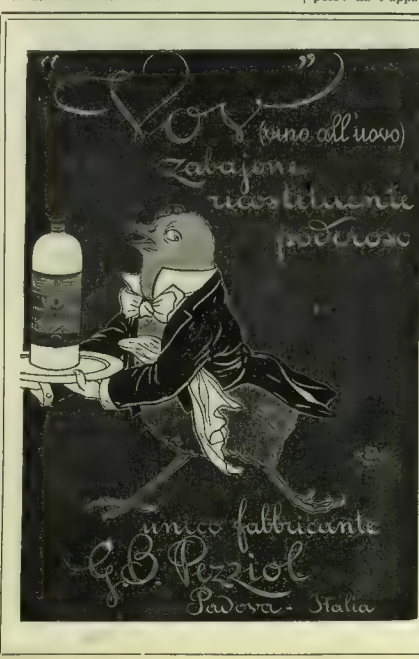 "Vov"
(vino all'uovo)
zabajone
ricostituente
poderoso
unico fabbricante
G.B. Pezziol
Padova - Italia